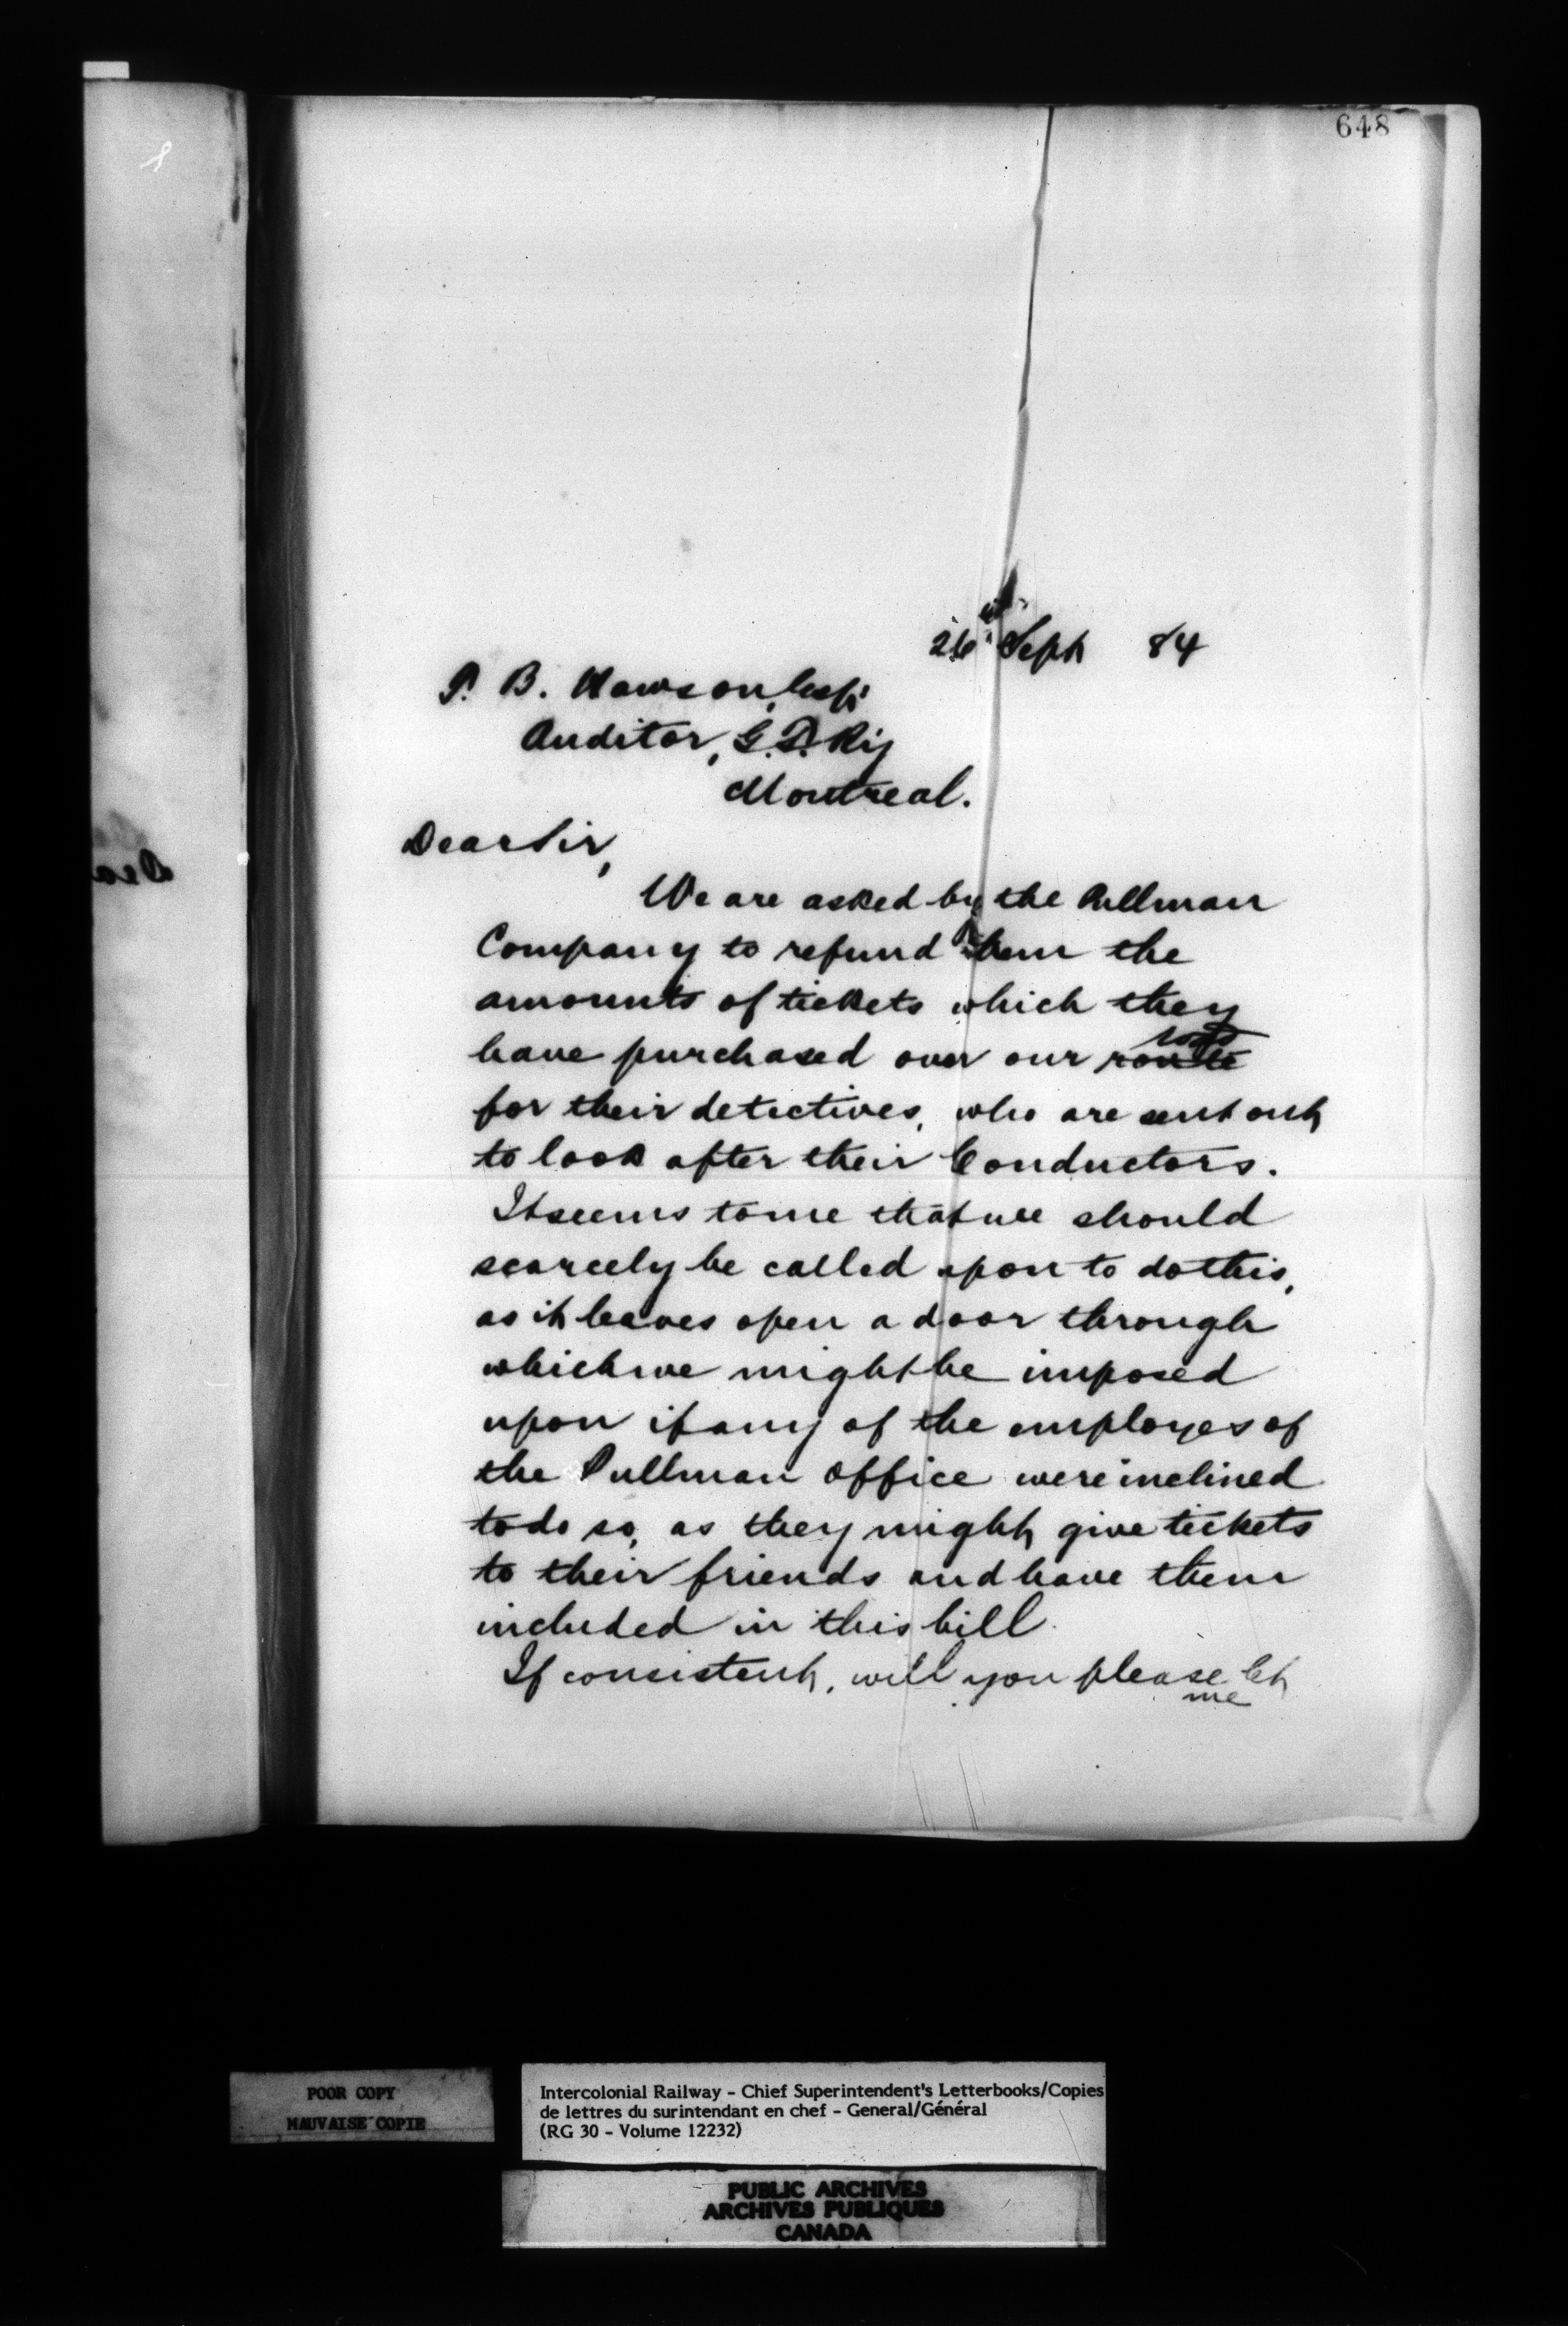 648
26th Sept 84
P. B. Hawson, Esq.
Auditor, G. T. Ry
Montreal.
Dear Sir,
We are asked by the Pullman
Company to refund them the
amounts of tickets which they
have purchased over our route
for their detectives, who are sent out
to look after their Conductors.
It seems to me that we should
scarcely be called upon to do this,
as it leaves open a door through
which we might be imposed
upon if any of the employes of
the Pullman office were inclined
to do so, as they might give tickets
to their friends and have them
included in this bill.
If consistent, will you please let
me
Dea
POOR COPY
MAUVAISE COPIE
Intercolonial Railway - Chief Superintendent's Letterbooks/Copies
de lettres du surintendant en chef - General/Général
(RG 30 - Volume 12232)
PUBLIC ARCHIVES
ARCHIVES PUBLIQUES
CANADA